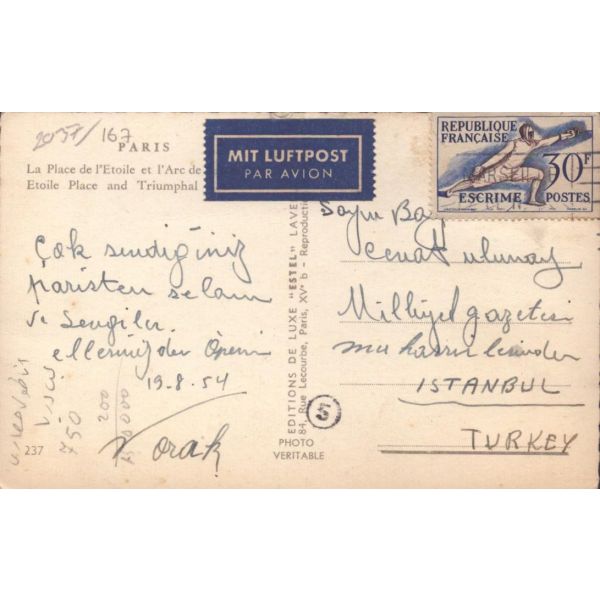 167
PARIS
La Place de l'Etoile et l'Arc de
Etoile Place and Triumphal
MIT LUFTPOST
PAR AVION
REPUBLIQUE
FRANÇAISE
30F
MARSEIL
ESCRIME POSTES
Çok sevdiğiniz
paristen selam
ve Sevgiler.
ellerinizden Öperim
19.8.54
Orak
Sayın Bay
Cevat
Milliyet gazetesi
muharrirlerinden
ISTANBUL
TURKEY
EDITIONS DE LUXE "ESTEL" LAVE
84, Rue Lecourbe, Paris, XVe b - Reproducti
5
PHOTO
VERITABLE
237
750
200